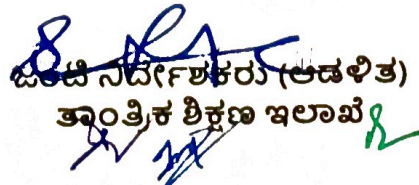 ಜಂಟಿ ನಿರ್ದೇಶಕರು (ಆಡಳಿತ)
ತಾಂತ್ರಿಕ ಶಿಕ್ಷಣ ಇಲಾಖೆ